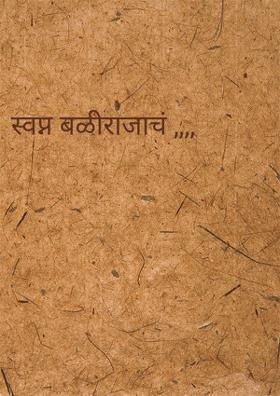 स्वप्न बळीराजाचं ,,,,